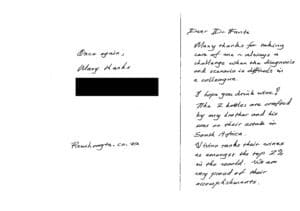 Once again,
Many thanks
Dear Dr
Many thanks for taking
care of me – always a
challenge when the diagnosis
and scenario is difficult in
a colleague.
I hope you drink wine!
The 2 bottles are crafted
by my brother and his
son on their estate in
South Africa.
ranks their wines
as amongst the top 2%
in the world. We are
very proud of their
accomplishments.